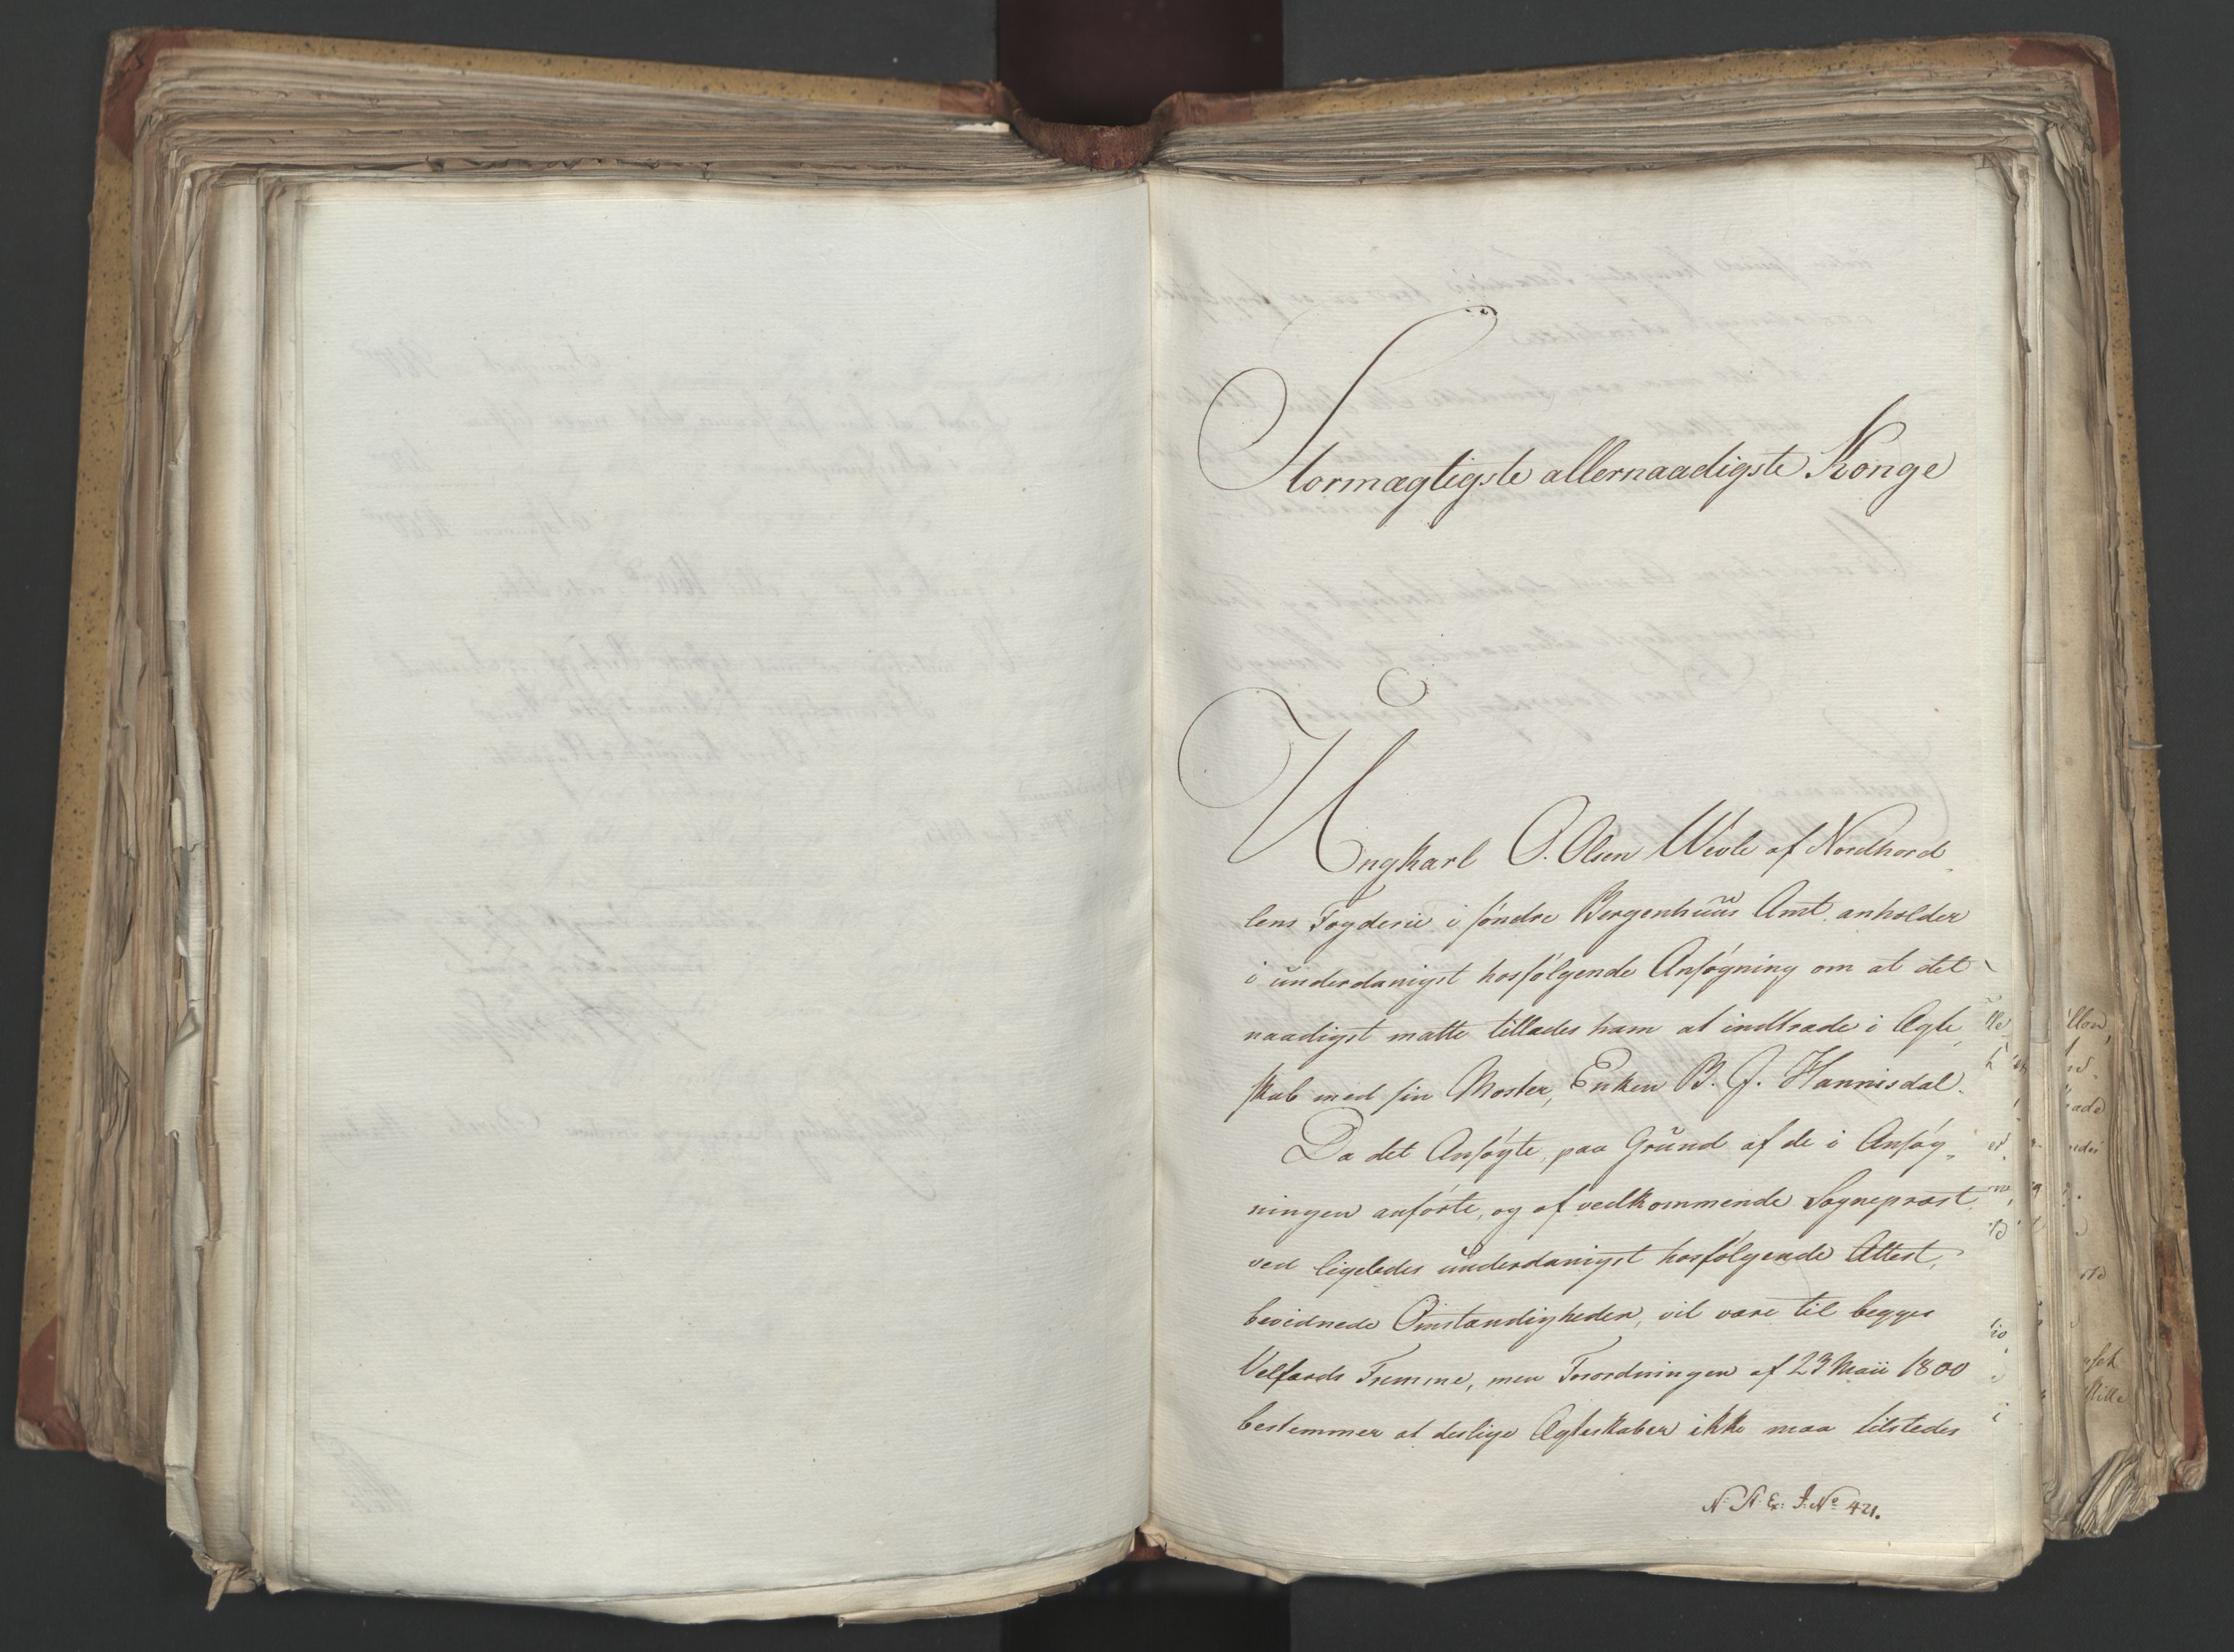 Stormægtigste allernaadigste Konge
Ungkarl O. Olsen Weole af Nordhord-
lens Fogderie i søndre Bergenhuus Amt anholder
i underdanigst hosfølgende Ansøgning om at det
naadigst matte tillades ham at indtræde i Ægte,
skab med sin Moster, Enken B. J. Hannisdal.
Da det Ansøgte, paa Grund af de i Ansøg-
ningen anførte, og af vedkommende Sognepræst
ved ligeledes underdanigst hosfølgende Attest,
bevidnede Omstændigheder, vil være til begges
Velfærds Fremme, men Forordningen af 23 Maii 1800
bestemmer at deslige Ægteskaber ikke maa tilstedes
N. N. Ex: J. No 421.